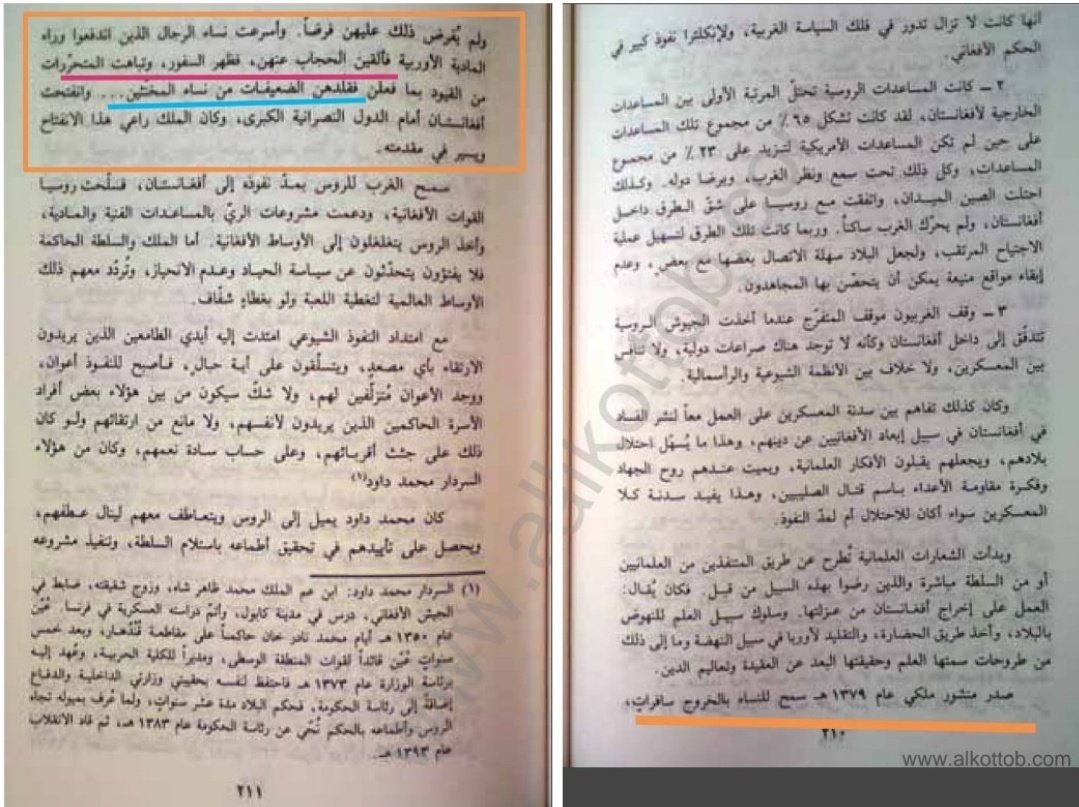 أنها كانت لا تزال تدور في فلك السياسة الغربية، ولإنكلترا نفوذ كبير في
الحكم الأفغاني.
٢ ـ كانت المساعدات الروسية تحتلّ المرتبة الأولى بين المساعدات
الخارجية لأفغانستان، لقد كانت تشكل ٦٥ ٪ من مجموع تلك المساعدات
على حين لم تكن المساعدات الأمريكية لتزيد على ٢٣ ٪ من مجموع
المساعدات، وكل ذلك تحت سمع ونظر الغرب، وبرضا دوله. وكذلك
احتلت الصين الميدان، واتفقت مع روسيا على شقّ الطرق داخل
أفغانستان، ولم يحرّك الغرب ساكناً. وربما كانت تلك الطرق لتسهيل عملية
الاجتياح المرتقب، ولجعل البلاد سهلة الاتصال بعضها مع بعض، وعدم
إبقاء مواقع منيعة يمكن أن يتحصّن بها المجاهدون.
٣ ـ وقف الغربيون موقف المتفرّج عندما أخذت الجيوش الروسية
تتدفّق إلى داخل أفغانستان وكأنه لا توجد هناك صراعات دولية، ولا تنافس
بين المعسكرين، ولا خلاف بين الأنظمة الشيوعية والرأسمالية.
وكان كذلك تفاهم بين سدنة المعسكرين على العمل معاً لنشر الفساد
في أفغانستان في سبيل إبعاد الأفغانيين عن دينهم، وهذا ما يُسهّل احتلال
بلادهم، ويجعلهم يقبلون الأفكار العلمانية، ويميت عندهم روح الجهاد
وفكرة مقاومة الأعداء باسم قتال الصليبيين، وهذا يفيد سدنة كلا
المعسكرين سواء أكان للاحتلال أم لمدّ النفوذ.
وبدأت الشعارات العلمانية تُطرح عن طريق المتنفذين من العلمانيين
أو من السلطة مباشرة والذين رضوا بهذه السبل من قبل. فكان يُقال:
العمل على إخراج أفغانستان من عزلتها. وسلوك سبيل العلم للنهوض
بالبلاد، وأخذ طريق الحضارة، والتقليد لأوروبا في سبيل النهضة وما إلى ذلك
من طروحات سمتها العلم وحقيقتها البعد عن العقيدة وتعاليم الدين.
صدر منشور ملكي عام ١٣٧٩ هـ سمح للنساء بالخروج سافراتٍ،
٢١٠
www.alkottob.com
ولم يُفرض ذلك عليهن فرضاً. وأسرعت نساء الرجال الذين اندفعوا وراء
المادية الأوربية فألقين الحجاب عنهن، فظهر السفور، وتباهت المتحرّرات
من القيود بما فعلن فقلدهن الضعيفات من نساء المخنثين... وانفتحت
أفغانستان أمام الدول النصرانية الكبرى، وكان الملك راعي هذا الانفتاح
ويسير في مقدمته.
سمح الغرب للروس بمدّ نفوذه إلى أفغانستان، فسلّحت روسيا
القوات الأفغانية، ودعمت مشروعات الريّ بالمساعدات الفنية والمادية،
وأخذ الروس يتغلغلون إلى الأوساط الأفغانية. أما الملك والسلطة الحاكمة
فلا يفتؤون يتحدّثون عن سياسة الحياد وعدم الانحياز، وتُردّد معهم ذلك
الأوساط العالمية لتغطية اللعبة ولو بغطاءٍ شفّاف.
مع امتداد النفوذ الشيوعي امتدت إليه أيدي الطامعين الذين يريدون
الارتقاء بأي مصعدٍ، ويتسلّقون على أية حالٍ، فأصبح للنفوذ أعوان،
ووجد الأعوان مُتزلّفين لهم، ولا شكّ سيكون من بين هؤلاء بعض أفراد
الأسرة الحاكمين الذين يريدون لأنفسهم، ولا مانع من ارتقائهم ولو كان
ذلك على جثث أقربائهم، وعلى حساب سادة نعمهم، وكان من هؤلاء
السردار محمد داود(١)
كان محمد داود يميل إلى الروس ويتعاطف معهم لينال عطفهم،
ويحصل على تأييدهم في تحقيق أطماعه باستلام السلطة، وتنفيذ مشروعه
(١) السردار محمد داود: ابن عم الملك محمد ظاهر شاه، وزوج شقيقته، ضابط في
الجيش الأفغاني، درس في مدينة كابول، وأتمّ دراسته العسكرية في فرنسا. عُيّن
عام ١٣٥٠ هـ أيام محمد نادر خان حاكماً على مقاطعة قُنْدُهار، وبعد خمس
سنوات عُيّن قائداً لقوات المنطقة الوسطى، ومديراً للكلية الحربية، وعُهد إليه
برئاسة الوزارة عام ١٣٧٣ هـ فاحتفظ لنفسه بحقيبتي وزارتي الداخلية والدفاع
إضافةً إلى رئاسة الحكومة، فحكم البلاد مدة عشر سنوات، ولما عُرف بميوله تجاه
الروس وأطماعه بالحكم نُحّي عن رئاسة الحكومة عام ١٣٨٣ هـ، ثم قاد الانقلاب
عام ١٣٩٣ هـ.
٢١١
www.alkottob.com